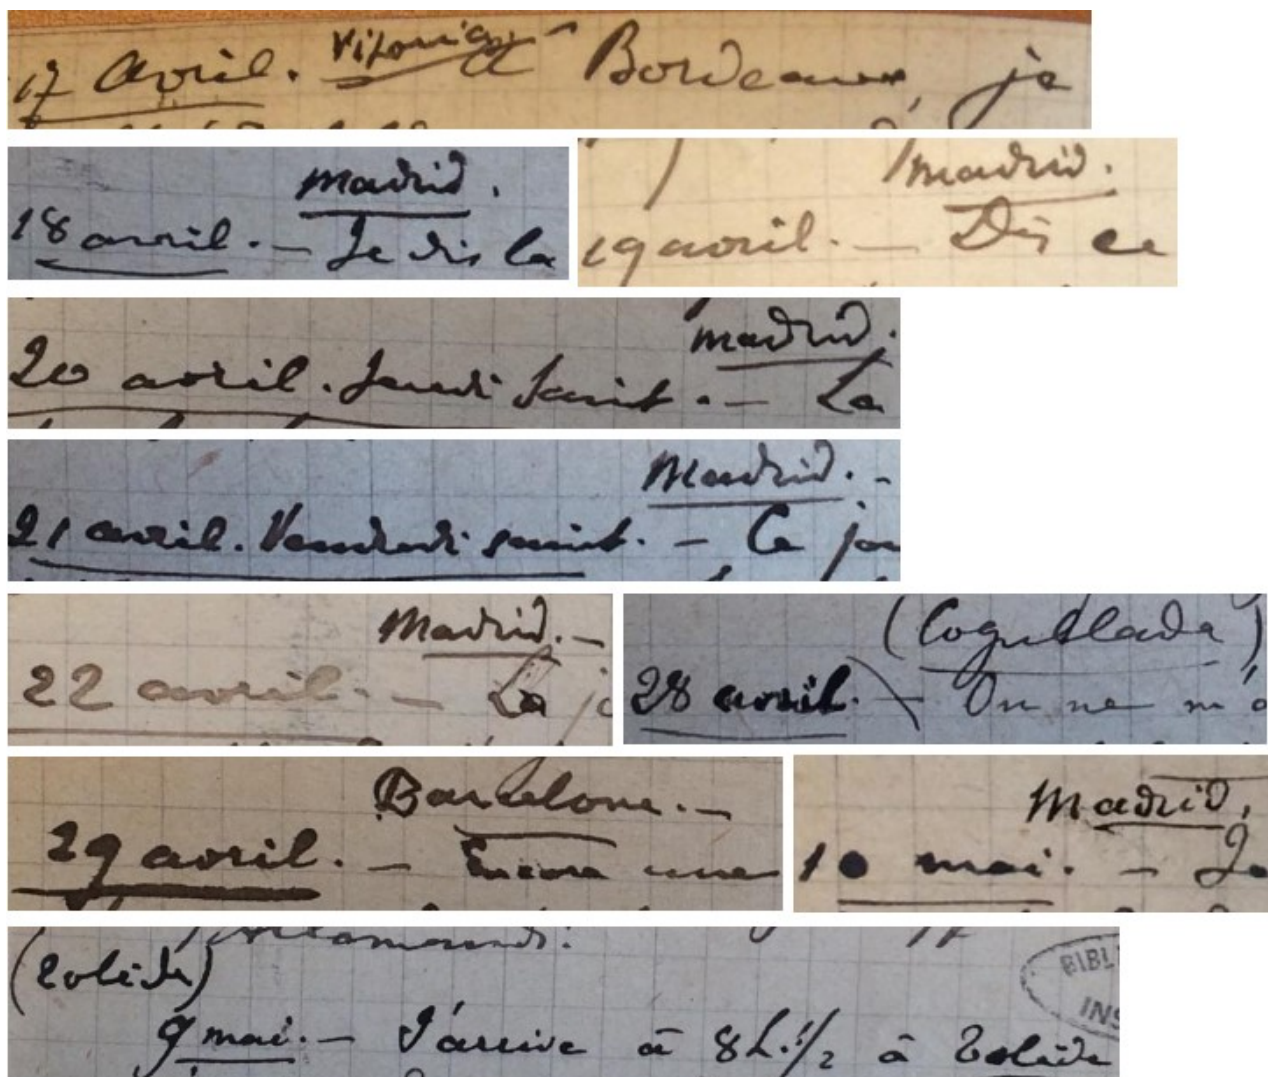 Vitoria
17 Avril. à Bordeaux, je
Madrid.
18 avril. — Je dis la
Madrid.
19 avril. — Dès ce
Madrid.
20 avril. Jeudi Saint. — La
Madrid. -
21 avril. Vendredi saint. — Ce jou
Madrid. —
22 avril. — La jo
(Cogullada)
28 avril. — On ne m'a
Barcelone. —
29 avril. — Encore une
Madrid.
10 mai. — Je
(Tolède)
9 mai. — J'arrive à 8h. 1/2 à Tolède
BIBL
INS